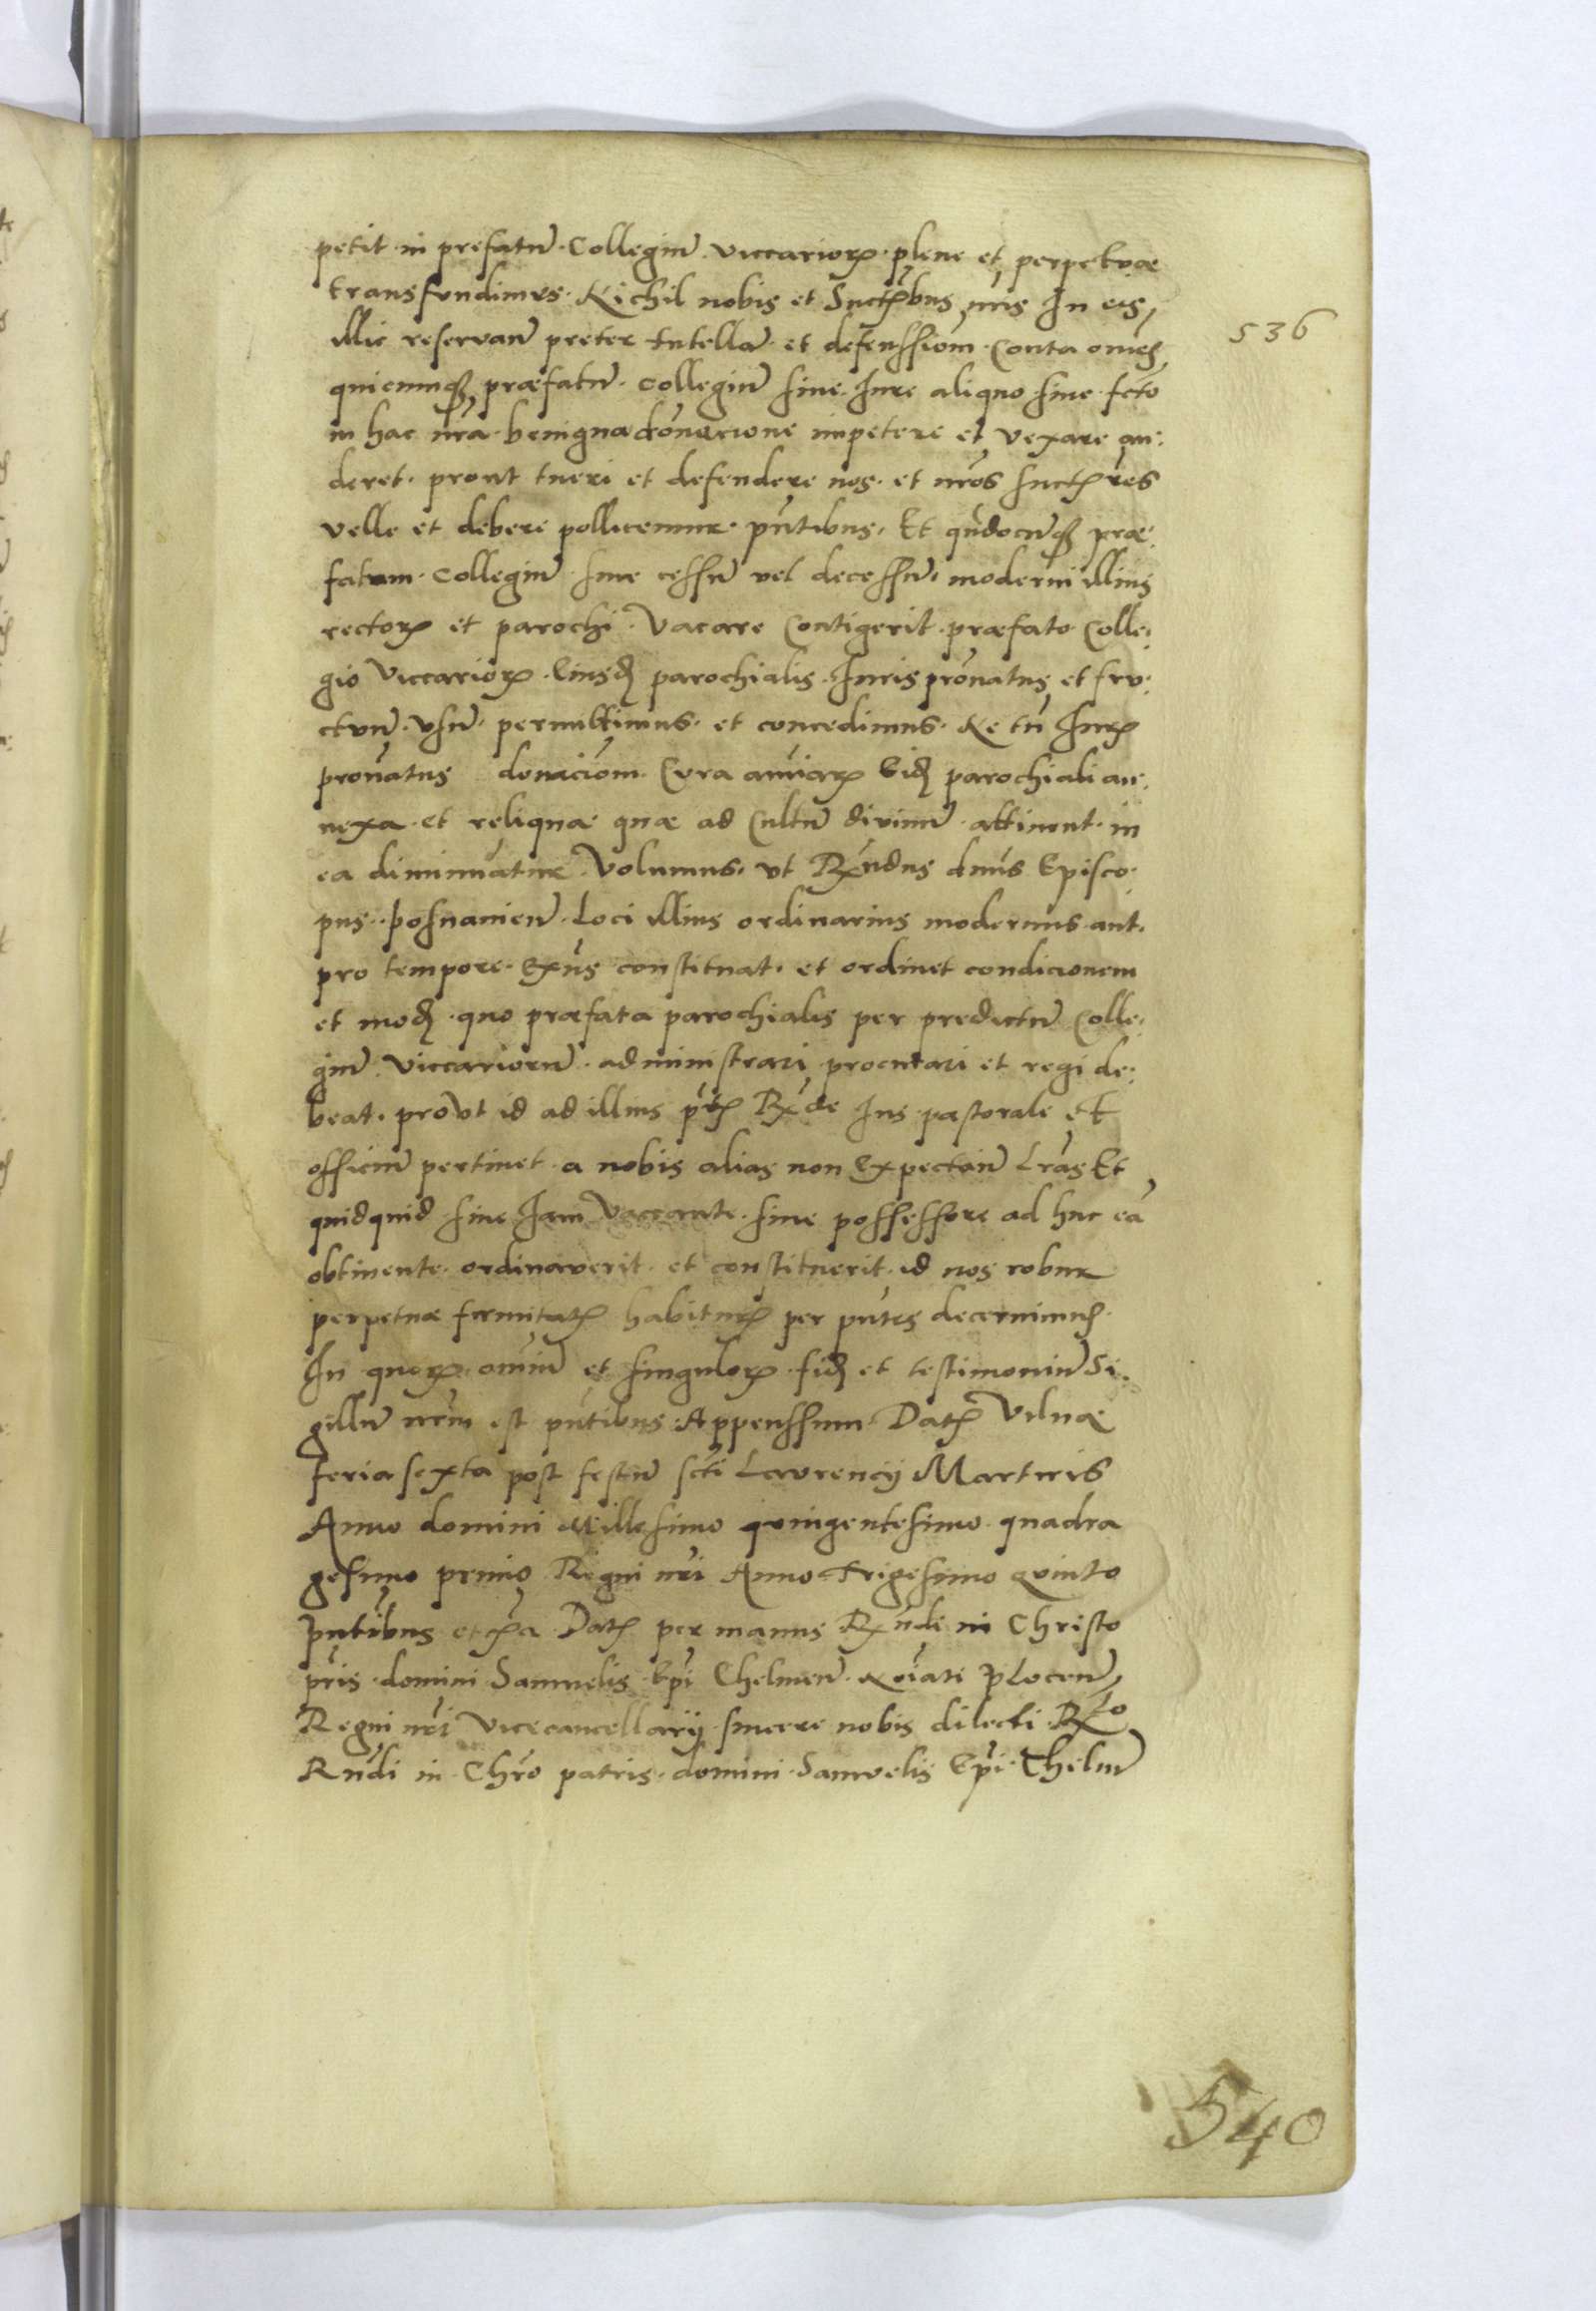 petit in prefatū Collegiū Viccarioꝝ plene et perpetuæ
transfundimus Nichil nobis et Suctꝰbus nr̄is In eis
illic reservan̄ preter tutellā et defenssiom̄ Conta om̄es
quicumqꝫ præfatū Collegiū sive Jure aliquo sive fcto
in hac nrā benigna donacione impetere et vexare au:
deret. prout tueri et defendere nos et nrōs suctꝰres
velle et debere pollicemur. pn̄tibus. Et qn̄docūqꝫ præ:
fatum Collegiū sive cessū vel decessū moderni illius
rectoꝝ et parochi Vacare Contigerit præfato Colle:
gio Viccarioꝝ Eiusdꝫ parochialis Juris prōnatus et fru:
ctum usū permittimus et concedimus. Ne tn̄ Jurꝭ
pronatus donaciom̄ Cura anīaꝝ Eidꝫ parochiali an:
nexa et reliqua quæ ad Cultū divinū attinent in
ea diminuātur Volumus ut Rx̄ndus dn̄us Episco:
pus posnanien̄ Loci illius ordinarius modernus aut
pro tempore exn̄s constituat et ordinet condicionem
et modꝫ quo præfata parochialis per predictū Colle:
giū Viccariorū administrari procutari et regi de:
beat. prout id ad illius pr̄tꝭ Rx de Jus pastorale et
officiū pertinet a nobis alias non expectān Lr̄as Et
quidquid sive Jam Vaccante sive possessore ad huc eā
obtinente ordinaverit et constituerit id nos robur
perpetuæ firmitatꝭ habiturꝝ per pn̄tes decernimus
In quoꝝ om̄iū et singuloꝝ fidꝫ et testimoniū Si:
gillū nrm̄ est pn̄tibus Appenssum Datꝭ Vilnæ
feria sexta post festū scti Laurencij Marturis
Anno domini Millesimo quingentesimo quadra
gesimo primo Regni nr̄i Anno trigesimo quinto
pn̄tibus etcꝭa Datꝭ per manus Rx̄ndi in Christo
pr̄is domini Samuelis Ep̄i Chelmen̄ Noīati Plocen̄
Regni nr̄i Vicecancellarij sincere nobis dilecti Rx̄to
Rn̄di in Chrō patris domini Samuelis Ep̄i Chelm̄
536
540